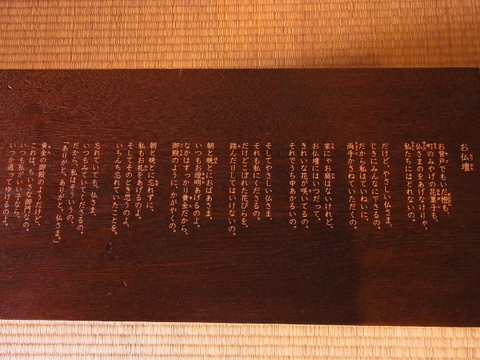 お仏壇
お背戸でもいだ橙も、
町のみやげの花菓子も、
仏さまのをあげなけりゃ、
私たちにはとれないの。
だけど、やさしい仏さま、
じきにみんなに下さるの。
だから私はていねいに、
両手かさねていただくの。
家にゃお庭はないけれど、
お仏壇にはいつだって、
きれいな花が咲いてるの。
それでうち中あかるいの。
そしてやさしい仏さま、
それも私にくださるの。
だけどこぼれた花びらを、
踏んだりしてはいけないの。
朝と晩とにおばあさま、
いつもお燈明あげるのよ。
なかはすっかり黄金だから、
御殿のように、かがやくの。
朝と晩とに忘れずに、
私もお礼をあげるのよ。
そしてそのとき思うのよ、
いちんち忘れていたことを。
忘れていても、仏さま、
いつもみていてくださるの。
だから、私はそういうの、
「ありがと、ありがと、仏さま。」
黄金の御殿のようだけど、
これは、ちいさな御門なの。
いつも私がいい子なら、
いつか通ってゆけるのよ。